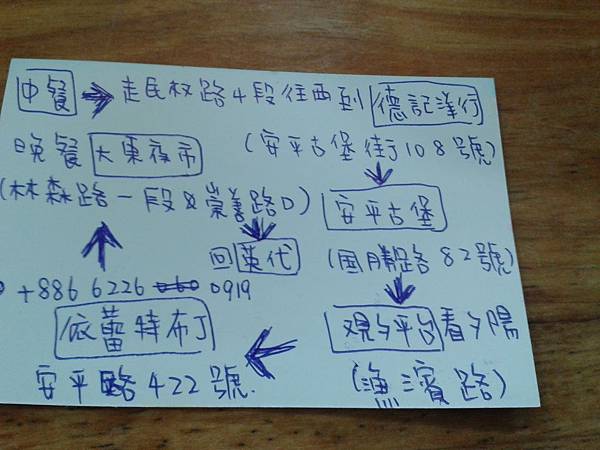 中餐 → 走民权路4段往西到 德記洋行
(安平古堡街108號)
安平古堡
(国勝路82號)
观夕平台看夕陽
(漁濱路)
依蕾特布丁
安平路422號.
+886 6226 0919
晚餐 大東夜市
(林森路一段&崇善路口)
回英代